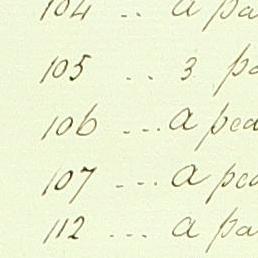 104 .. a pa
105 .. 3 pa
106 ... a pea
107 ... a pea
112 ... a pa